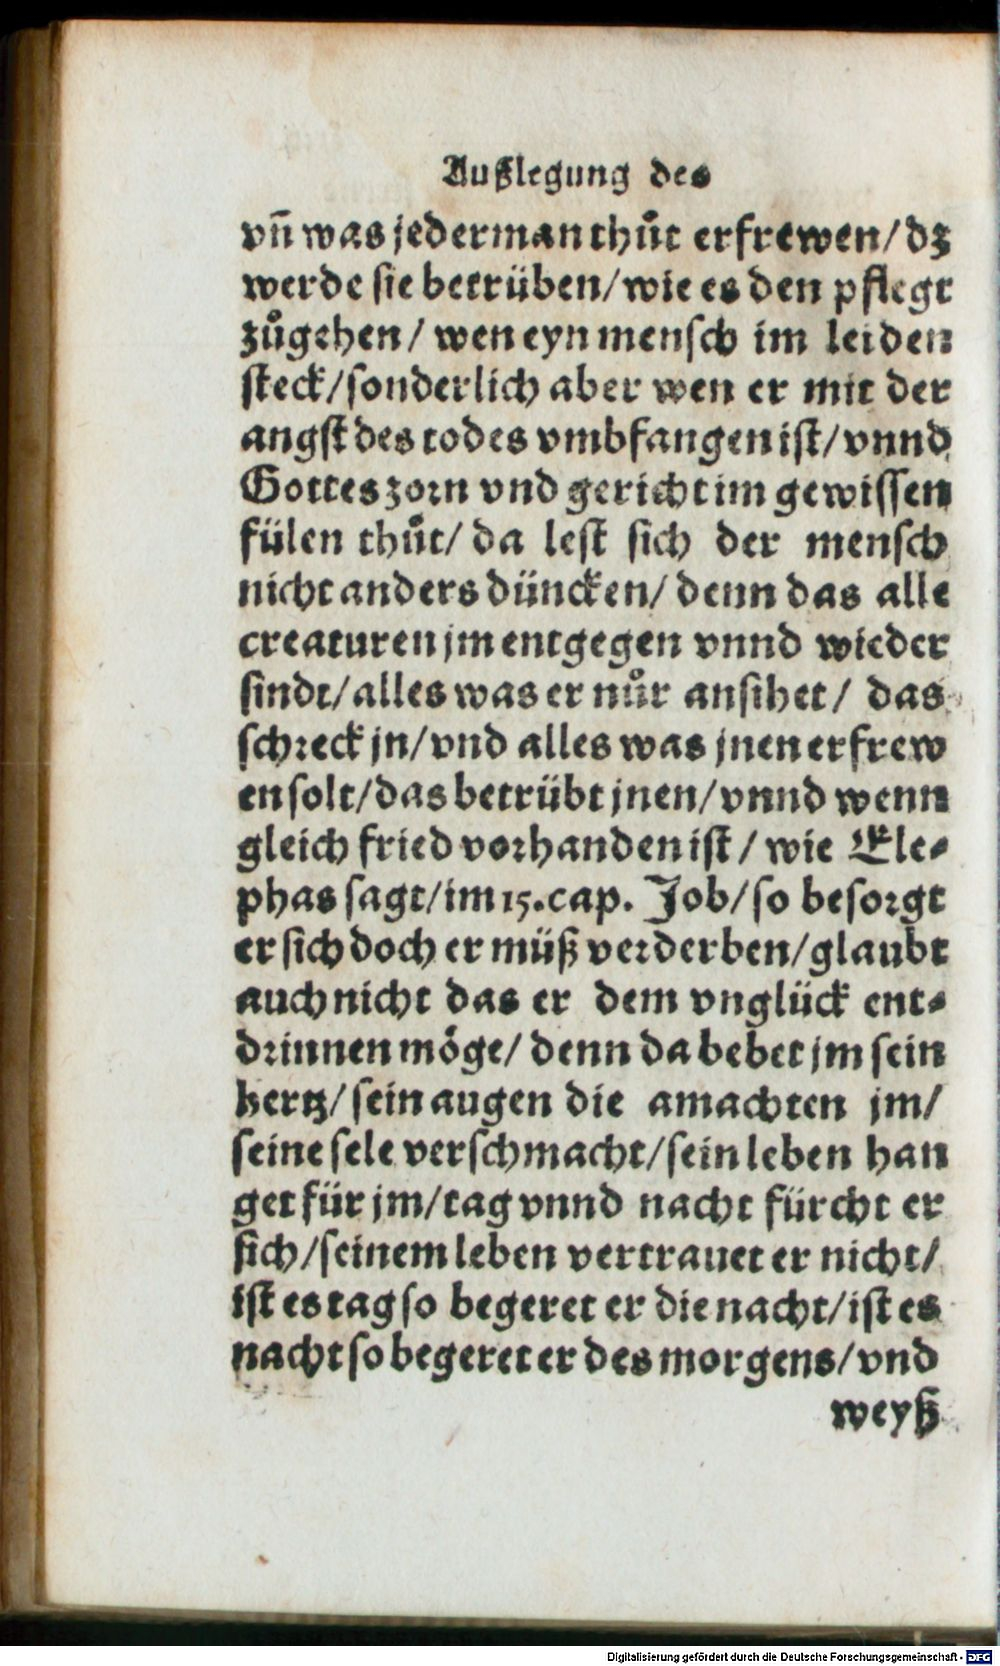 Außlegung des
vñ was jederman thůt erfrewen/ dz
werde sie betrüben/ wie es den pflegt
zůgehen/ wen eyn mensch im leiden
steck/ sonderlich aber wen er mit der
angst des todes vmbfangen ist/ vnnd
Gottes zorn vnd gericht im gewissen
fülen thůt/ da lest sich der mensch
nicht anders düncken/ denn das alle
creaturen jm entgegen vnnd wieder
sindt/ alles was er nůr ansihet/ das
schreck jn/ vnd alles was jnen erfrew
en solt/ das betrübt jnen/ vnnd wenn
gleich fried vorhanden ist/ wie Ele⸗
phas sagt/ im 15. cap. Job/ so besorgt
er sich doch er müß verderben/ glaubt
auch nicht das er dem vnglück ent⸗
drinnen möge/ denn da bebet jm sein
hertz/ sein augen die amachten jm/
seine sele verschmacht/ sein leben han
get für jm/ tag vnnd nacht fürcht er
sich/ seinem leben vertrauet er nicht/
ist es tag so begeret er die nacht/ ist es
nacht so begeret er des morgens/ vnd
weyß
Digitalisierung gefördert durch die Deutsche Forschungsgemeinschaft - DFG